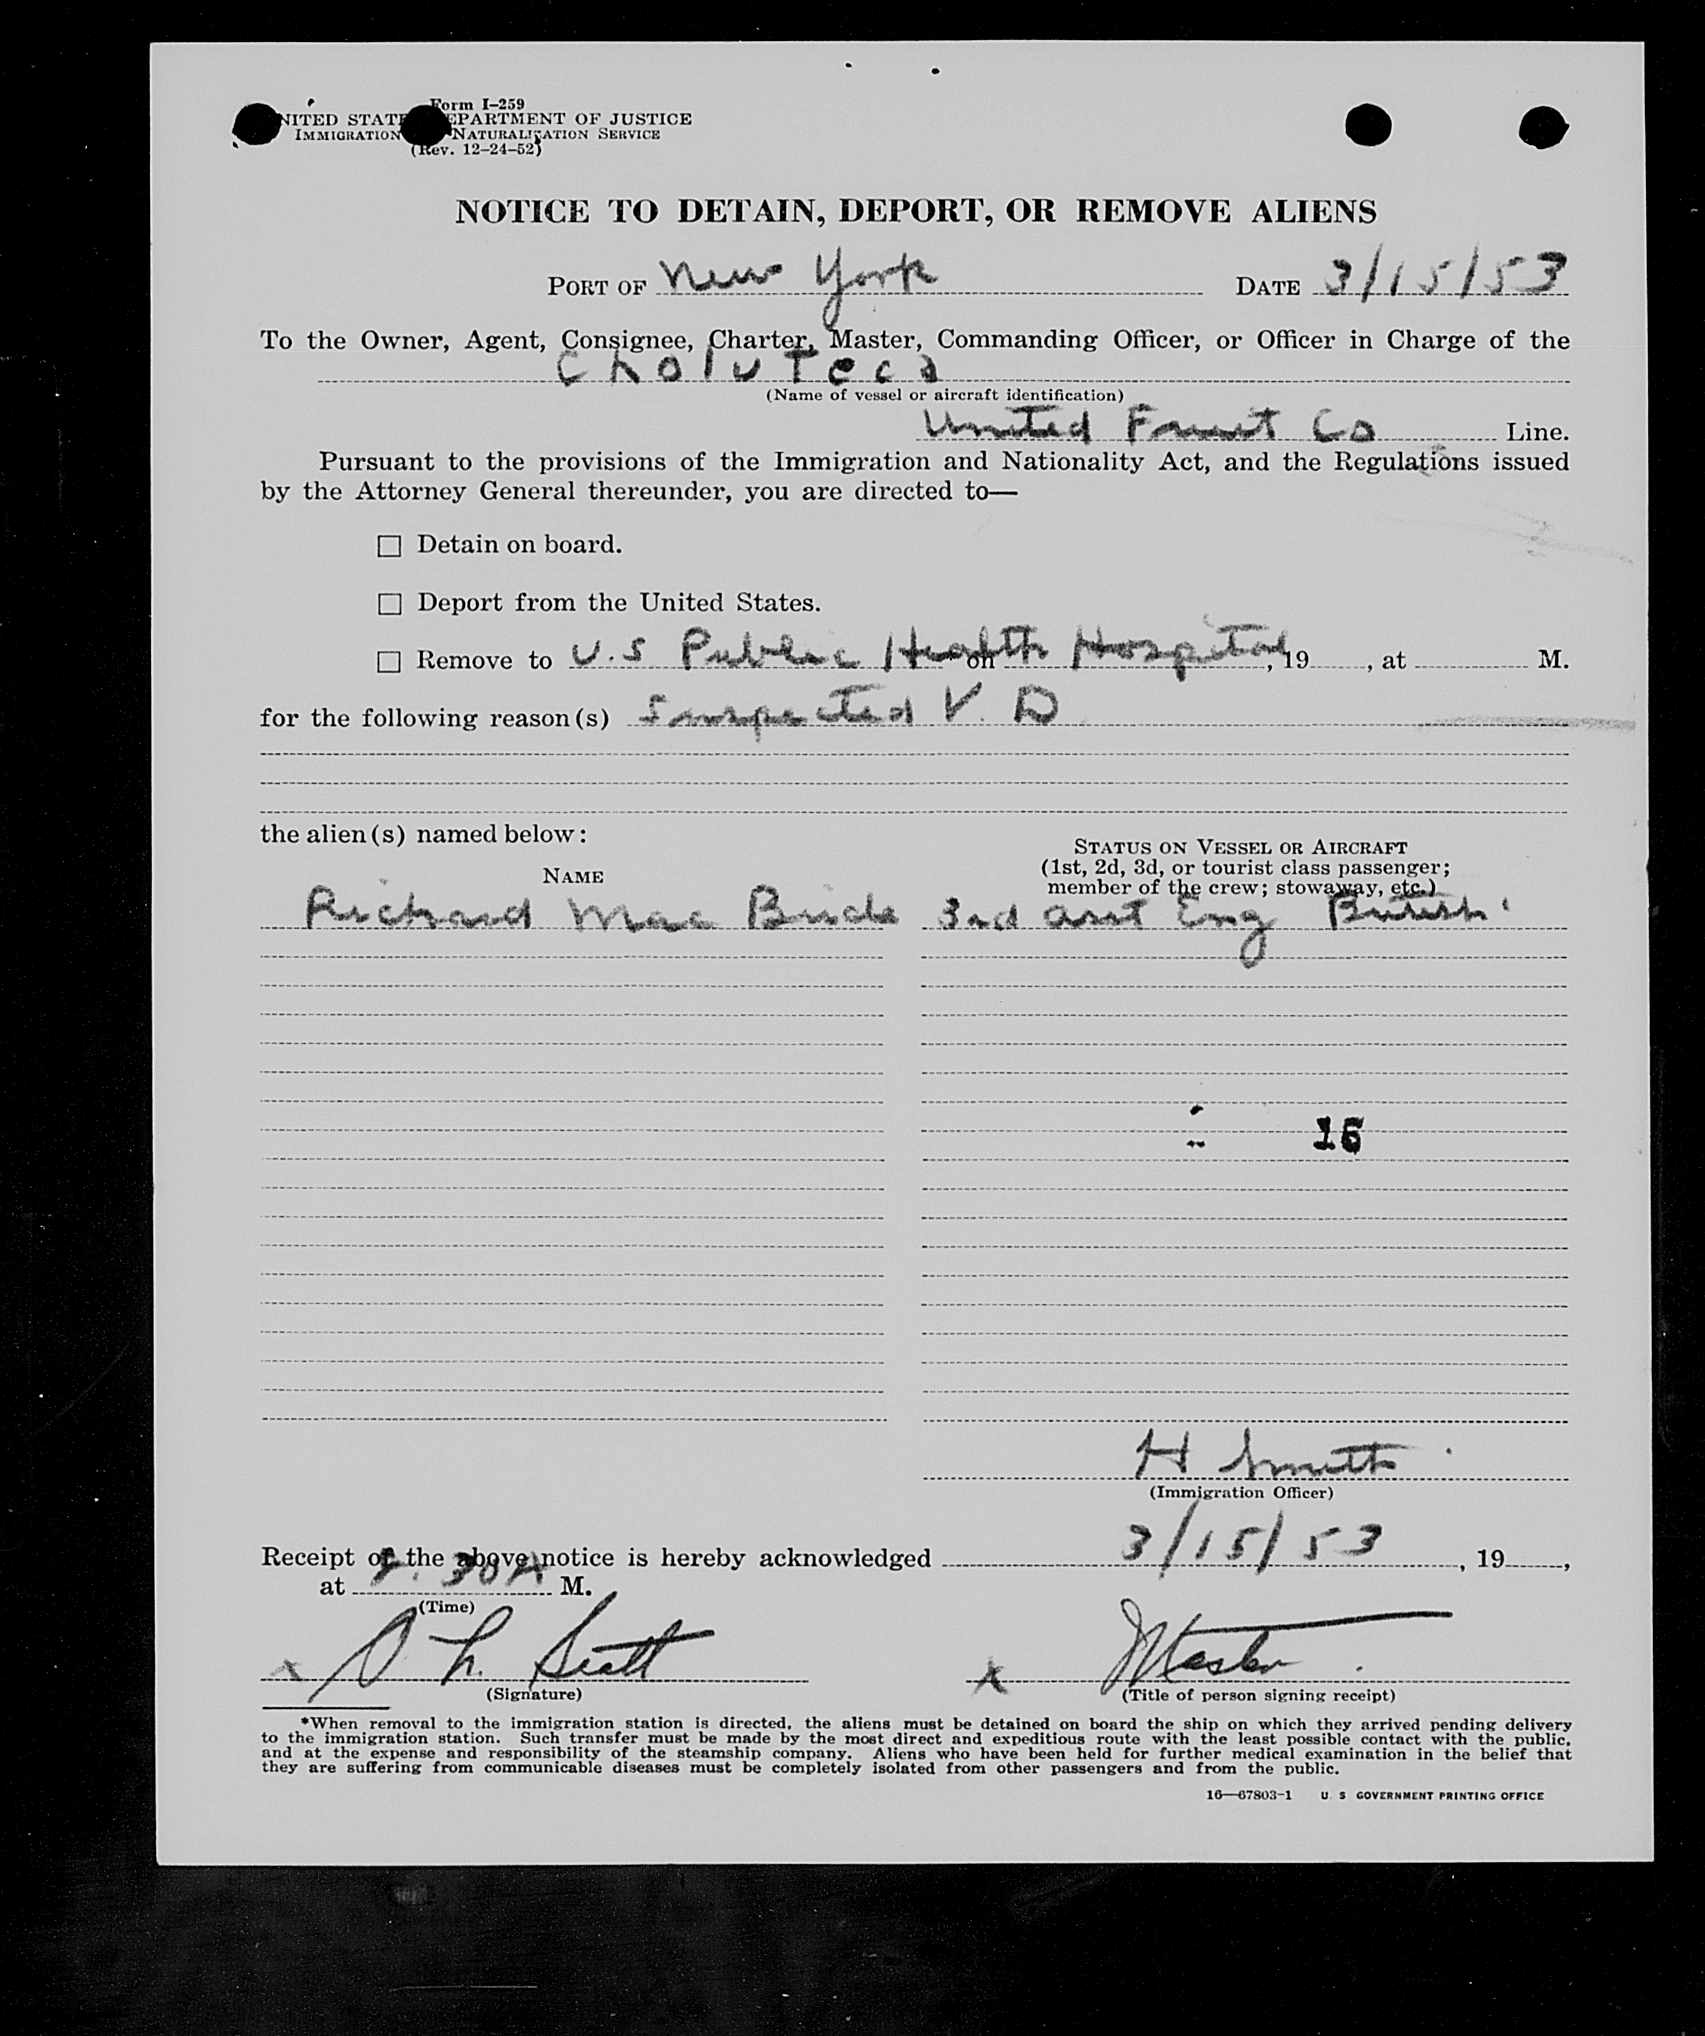 Form I–259
NITED STATE EPARTMENT OF JUSTICE
IMMIGRATION NATURALIZATION SERVICE
(Rev. 12–24–52)
NOTICE TO DETAIN, DEPORT, OR REMOVE ALIENS
PORT OF New York DATE 3/15/53
To the Owner, Agent, Consignee, Charter, Master, Commanding Officer, or Officer in Charge of the
Choluteca
(Name of vessel or aircraft identification)
United Fruit Co Line.
Pursuant to the provisions of the Immigration and Nationality Act, and the Regulations issued
by the Attorney General thereunder, you are directed to—
☐ Detain on board.
☐ Deport from the United States.
☐ Remove to U.S Public Health Hospital on , 19 , at M.
for the following reason(s) Suspected V. D
the alien(s) named below:
STATUS ON VESSEL OR AIRCRAFT
(1st, 2d, 3d, or tourist class passenger;
NAME
member of the crew; stowaway, etc.)
Richard Mac 3rd asst Eng British
16
H Smith
(Immigration Officer)
Receipt of the above notice is hereby acknowledged 3/15/53 , 19 ,
at 30A M.
(Time)
x Scott x Master
(Signature) (Title of person signing receipt)
*When removal to the immigration station is directed, the aliens must be detained on board the ship on which they arrived pending delivery
to the immigration station. Such transfer must be made by the most direct and expeditious route with the least possible contact with the public,
and at the expense and responsibility of the steamship company. Aliens who have been held for further medical examination in the belief that
they are suffering from communicable diseases must be completely isolated from other passengers and from the public.
16—67803-1 U. S GOVERNMENT PRINTING OFFICE